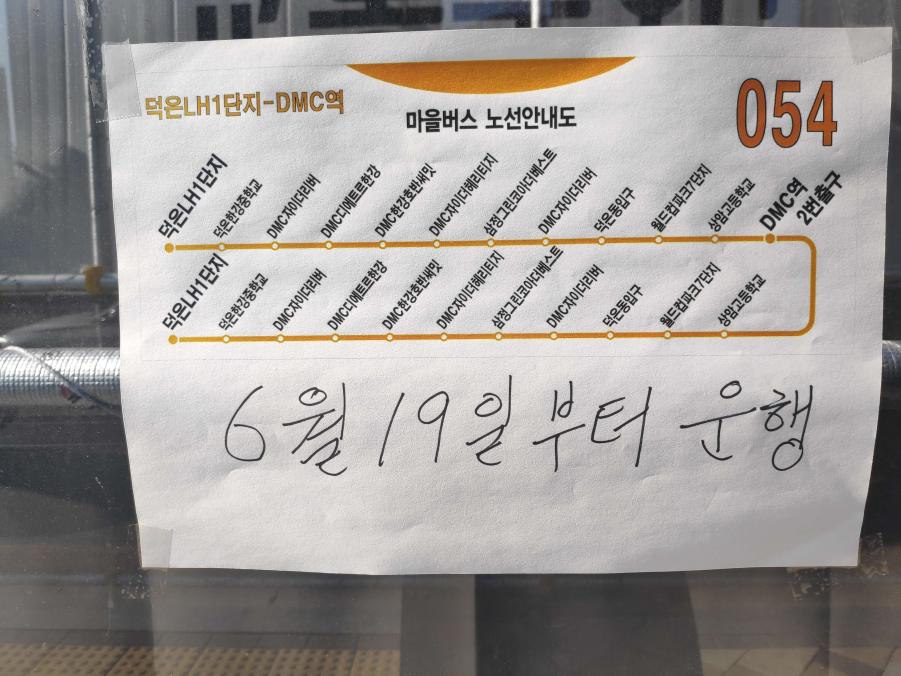 덕은LH1단지-DMC역
마을버스 노선안내도
054
덕은LH1단지
덕은한강중학교
DMC자이더리버
DMC디에트르한강
DMC한강호반써밋
DMC자이더헤리티지
삼정그린코아더베스트
DMC자이더리버
덕은동입구
월드컵파크7단지
상암고등학교
DMC역
2번출구
덕은LH1단지
덕은한강중학교
DMC자이더리버
DMC디에트르한강
DMC한강호반써밋
DMC자이더헤리티지
삼정그린코아더베스트
DMC자이더리버
덕은동입구
월드컵파크7단지
상암고등학교
6월 19일 부터 운행